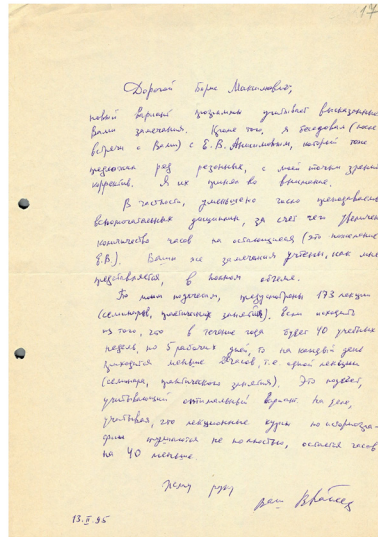 17
Дорогой Борис Максимович,
новый вариант программы учитывает высказанные
Вами замечания. Кроме того, я беседовал (после
встречи с Вами) с Е.В. Анисимовым, который тоже
предложил ряд резонных, с моей точки зрения
корректив. Я их принял во внимание.
В частности, уменьшено число преподаваемых
вспомогательных дисциплин, за счет чего увеличено
количество часов на оставшиеся (это пожелание
Е.В.). Ваши же замечания учтены, как мне
представляется, в полном объеме.
По моим подсчетам, предусмотрены 173 лекции
(семинаров, практических занятий). Если исходить
из того, что в течение года будет 40 учебных
недель, по 5 рабочих дней, то на каждый день
приходится меньше часов, т.е. одной лекции
(семинара, практического занятия). Это
учитывающий оптимальный вариант. На деле,
учитывая, что лекционные курсы по историогра-
фии читаются не полностью, остается часов
на 40 меньше.
Жму руку
Ваш
13.II.95